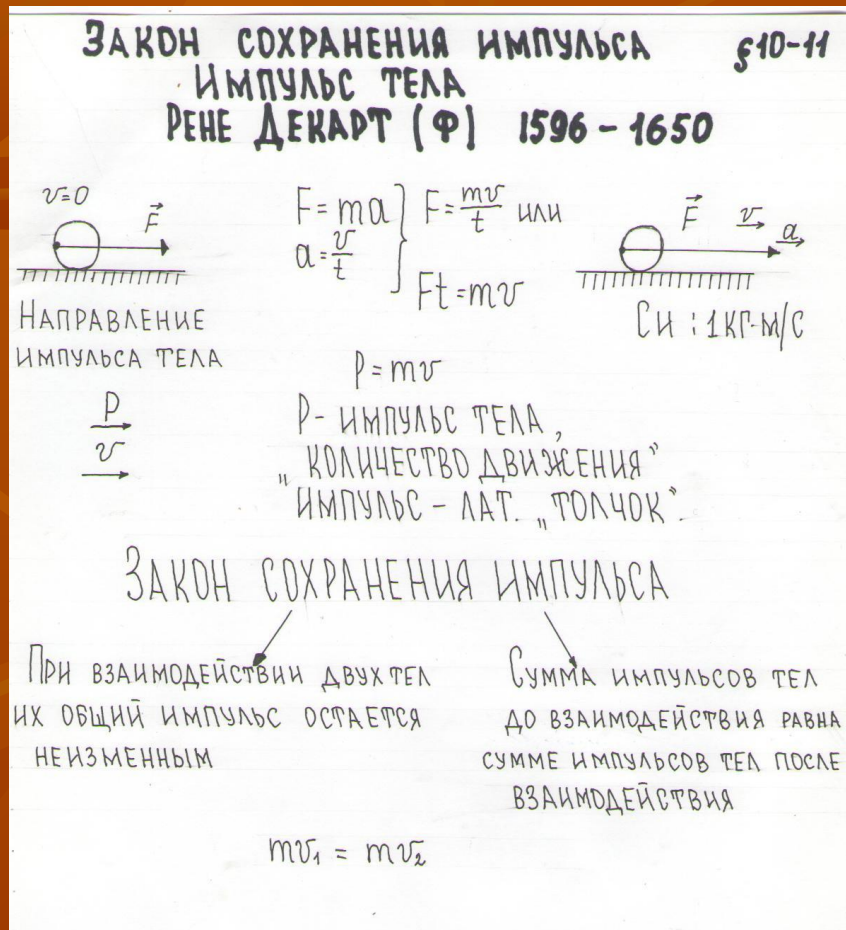 ЗАКОН СОХРАНЕНИЯ ИМПУЛЬСА §10-11
ИМПУЛЬС ТЕЛА
РЕНЕ ДЕКАРТ (Ф) 1596 - 1650
v=0
F
F=ma
a=v/t
F=mv/t или
Ft=mv
F v a
СИ: 1КГ·М/С
НАПРАВЛЕНИЕ
ИМПУЛЬСА ТЕЛА
P
v
P=mv
P- ИМПУЛЬС ТЕЛА,
„КОЛИЧЕСТВО ДВИЖЕНИЯ”
ИМПУЛЬС - ЛАТ. „ТОЛЧОК”.
ЗАКОН СОХРАНЕНИЯ ИМПУЛЬСА
ПРИ ВЗАИМОДЕЙСТВИИ ДВУХ ТЕЛ
ИХ ОБЩИЙ ИМПУЛЬС ОСТАЕТСЯ
НЕИЗМЕННЫМ
СУММА ИМПУЛЬСОВ ТЕЛ
ДО ВЗАИМОДЕЙСТВИЯ РАВНА
СУММЕ ИМПУЛЬСОВ ТЕЛ ПОСЛЕ
ВЗАИМОДЕЙСТВИЯ
mv₁ = mv₂